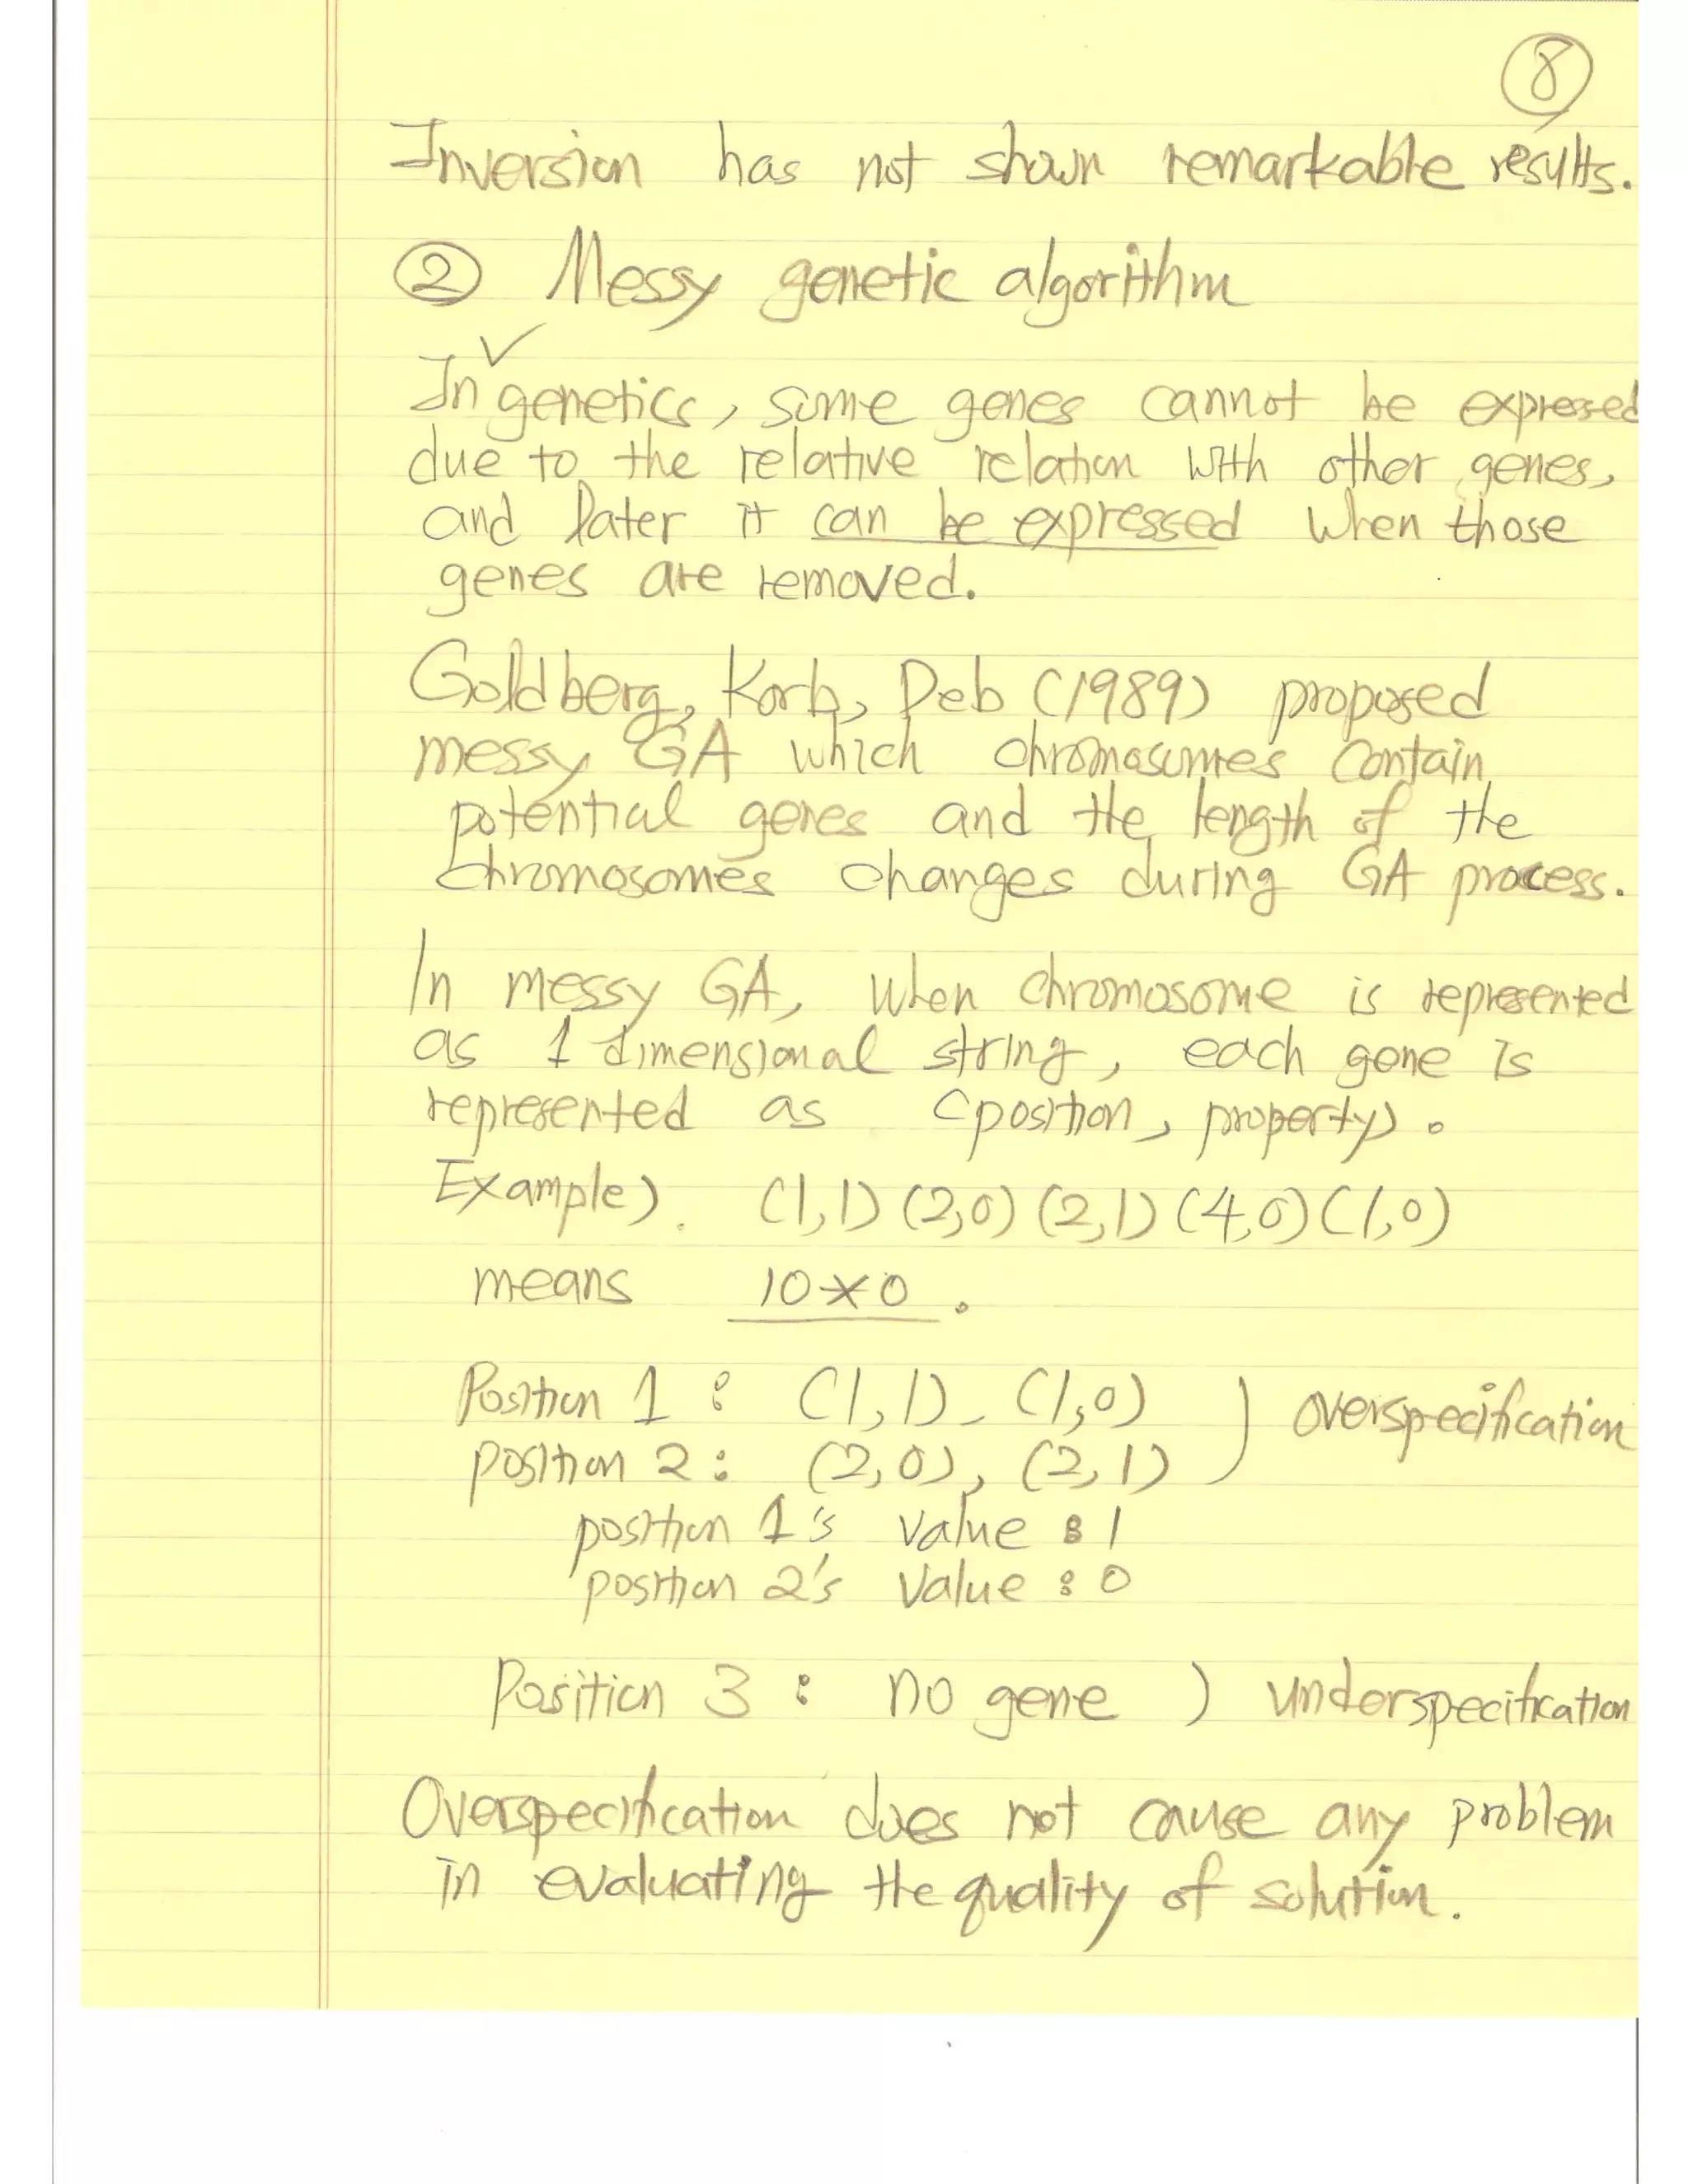 8
Inversion has not shown remarkable results.
② Messy genetic algorithm
In genetics, some genes cannot be expressed
due to the relative relation with other genes,
and later it can be expressed when those
genes are removed.
Goldberg, Korb, Deb (1989) proposed
messy GA which chromosomes contain
potential genes and the length of the
chromosomes changes during GA process.
In messy GA, when chromosome is represented
as 1 dimensional string, each gene is
represented as (position, property).
Example). (1,1) (2,0) (2,1) (4,0) (1,0)
means 10*0.
Position 1: (1,1), (1,0)
position 2: (2,0), (2,1) ) overspecification
position 1's value: 1
position 2's value: 0
Position 3: no gene ) underspecification
Overspecification does not cause any problem
in evaluating the quality of solution.